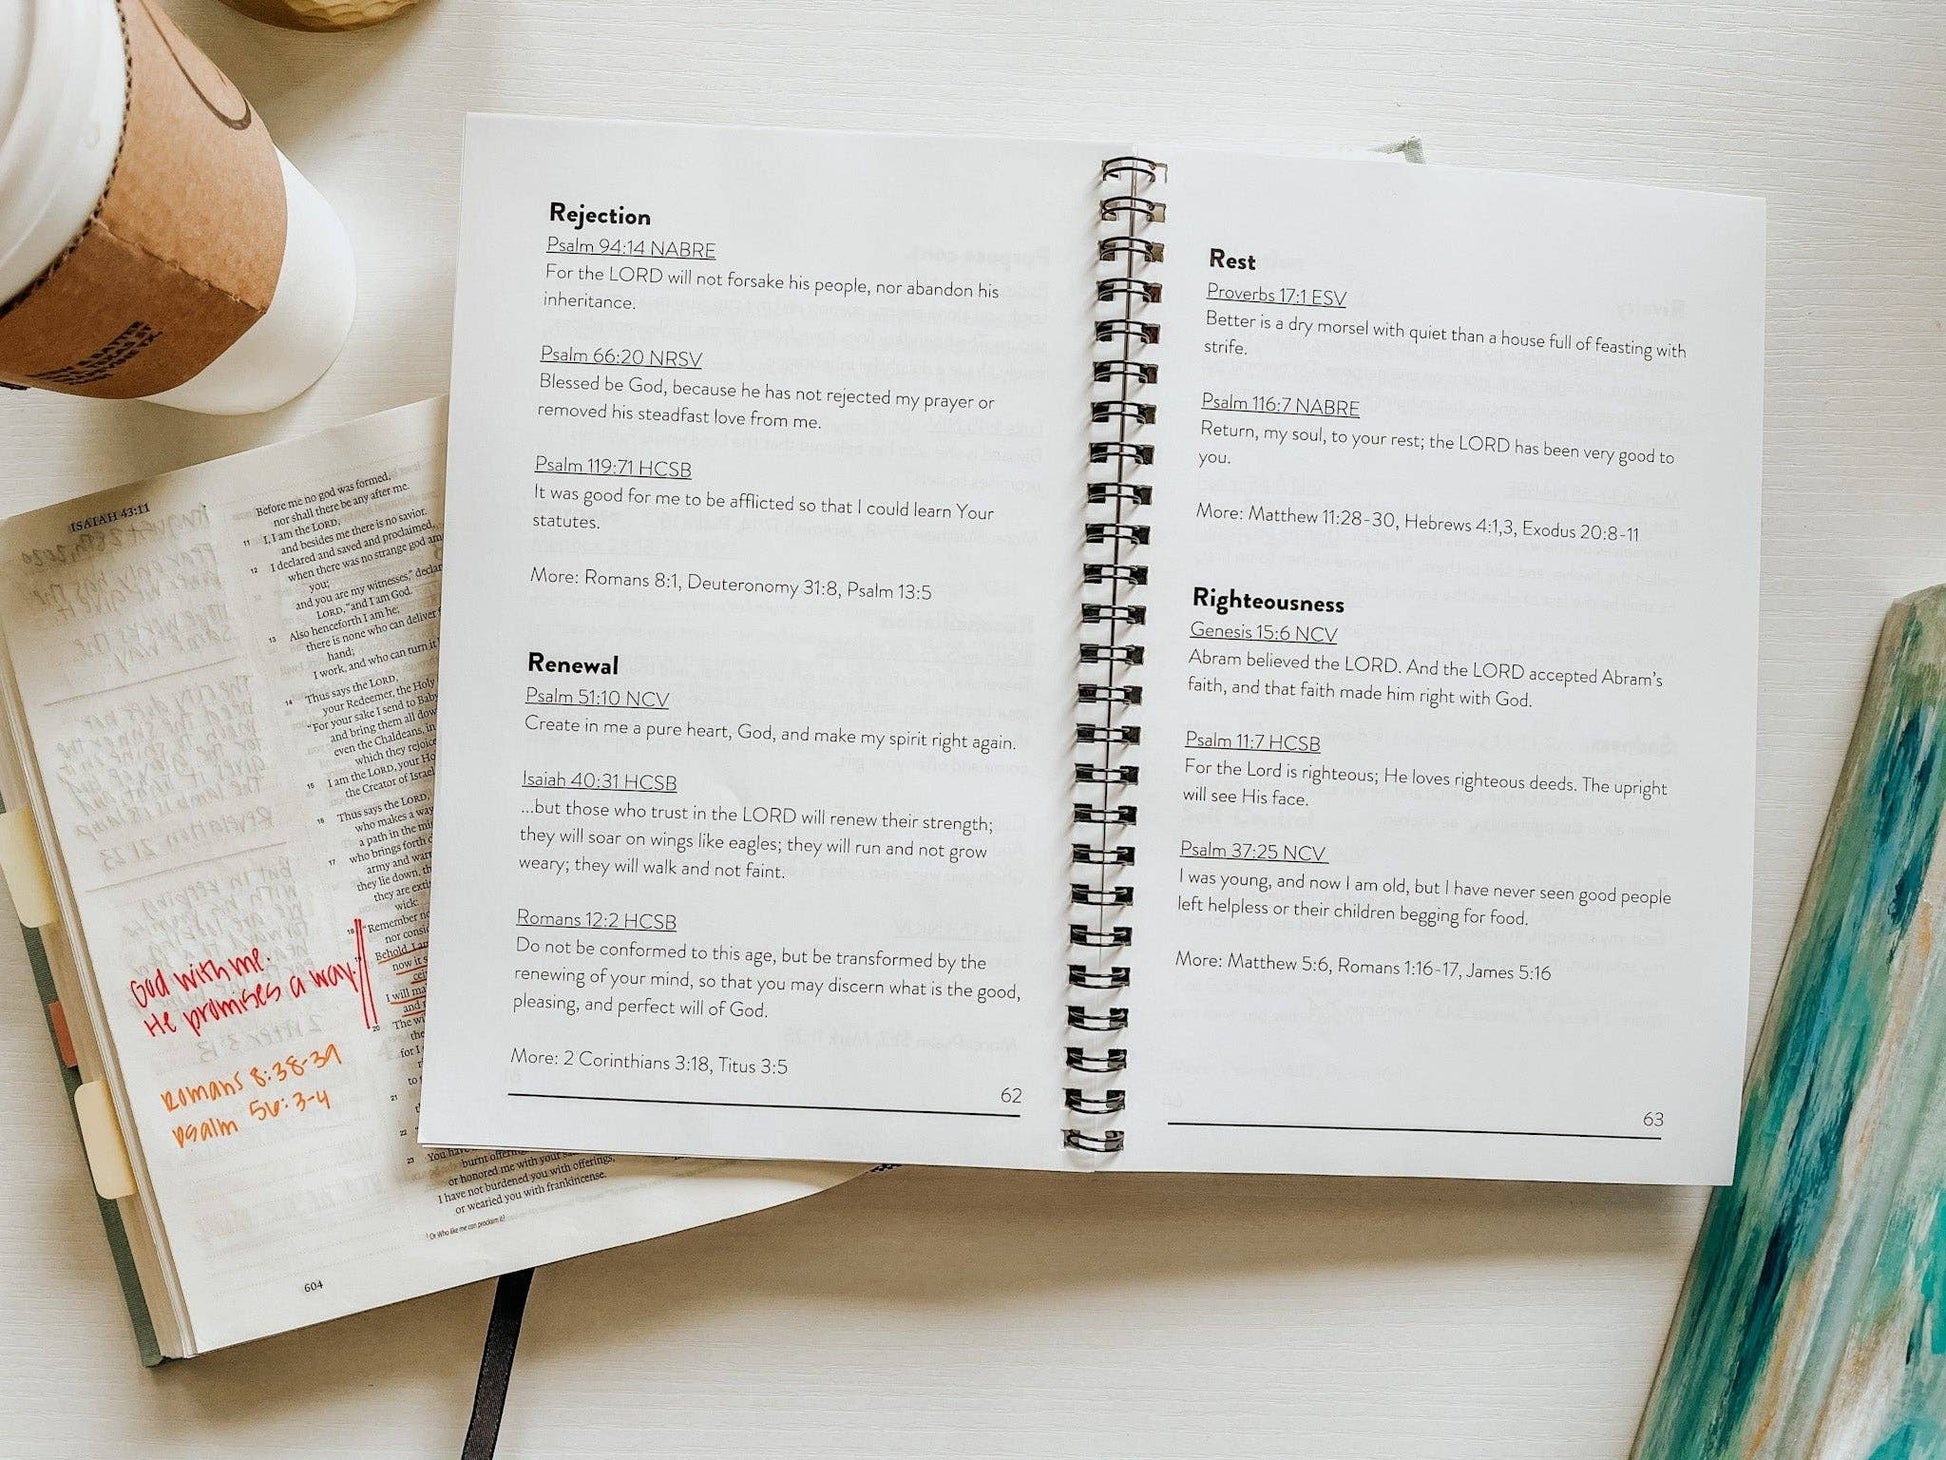 Rejection
Psalm 94:14 NABRE
For the LORD will not forsake his people, nor abandon his
inheritance.
Psalm 66:20 NRSV
Blessed be God, because he has not rejected my prayer or
removed his steadfast love from me.
Psalm 119:71 HCSB
It was good for me to be afflicted so that I could learn Your
statutes.
More: Romans 8:1, Deuteronomy 31:8, Psalm 13:5
Renewal
Psalm 51:10 NCV
Create in me a pure heart, God, and make my spirit right again.
Isaiah 40:31 HCSB
...but those who trust in the LORD will renew their strength;
they will soar on wings like eagles; they will run and not grow
weary; they will walk and not faint.
Romans 12:2 HCSB
Do not be conformed to this age, but be transformed by the
renewing of your mind, so that you may discern what is the good,
pleasing, and perfect will of God.
More: 2 Corinthians 3:18, Titus 3:5
62
Rest
Proverbs 17:1 ESV
Better is a dry morsel with quiet than a house full of feasting with
strife.
Psalm 116:7 NABRE
Return, my soul, to your rest; the LORD has been very good to
you.
More: Matthew 11:28-30, Hebrews 4:1,3, Exodus 20:8-11
Righteousness
Genesis 15:6 NCV
Abram believed the LORD. And the LORD accepted Abram's
faith, and that faith made him right with God.
Psalm 11:7 HCSB
For the Lord is righteous; He loves righteous deeds. The upright
will see His face.
Psalm 37:25 NCV
I was young, and now I am old, but I have never seen good people
left helpless or their children begging for food.
More: Matthew 5:6, Romans 1:16-17, James 5:16
63
ISAIAH 43:11
Before me no god was formed,
nor shall there be any after me.
11 I, I am the LORD,
and besides me there is no savior.
12 I declared and saved and proclaimed,
when there was no strange god
you;
and you are my witnesses,"
LORD, "and I am God.
13 Also henceforth I am he;
there is none who can deliver
hand;
I work, and who can turn it
14 Thus says the LORD,
your Redeemer, the Holy
"For your sake I send to
and bring them all
even the Chaldeans, in
which they rejoice
15 I am the LORD, your
the Creator of Israel
16 Thus says the LORD,
who makes a way
a path in the
17 who brings forth
army and
they lie down,
they are
wick:
18 "Remember
nor
Behold, I
now it
I will
and
20 The
the
for I
to
21
22
God with me.
He promises a way.
Romans 8:38-39
Psalm 56:3-4
23 You have
burnt
or honored me with your
I have not burdened you with offerings,
or wearied you with frankincense.
1 Or Who like me can proclaim it?
604